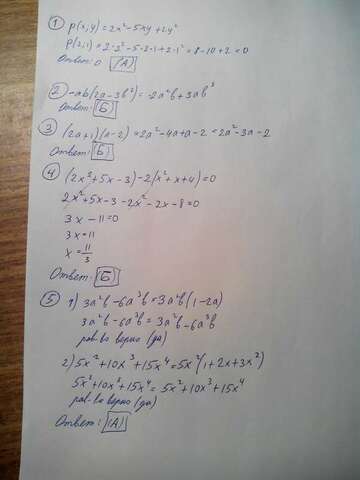 ① p(x,y)=2x²-5xy+2y²
p(2;1)=2·2²-5·2·1+2·1²=8-10+2=0
Ответ: 0 (А)
② -ab(2a-3b²)=-2a²b+3ab³
Ответ: (Б)
③ (2a+1)(a-2)=2a²-4a+a-2=2a²-3a-2
Ответ: (Б)
④ (2x²+5x-3)-2(x²+x+4)=0
2x²+5x-3-2x²-2x-8=0
3x-11=0
3x=11
x=11/3
Ответ: (Б)
⑤ 1) 3a²b-6a³b=3a²b(1-2a)
3a²b-6a³b=3a²b-6a³b
рав-во верно (да)
2) 5x²+10x³+15x⁴=5x²(1+2x+3x²)
5x²+10x³+15x⁴=5x²+10x³+15x⁴
рав-во верно (да)
Ответ: (А)